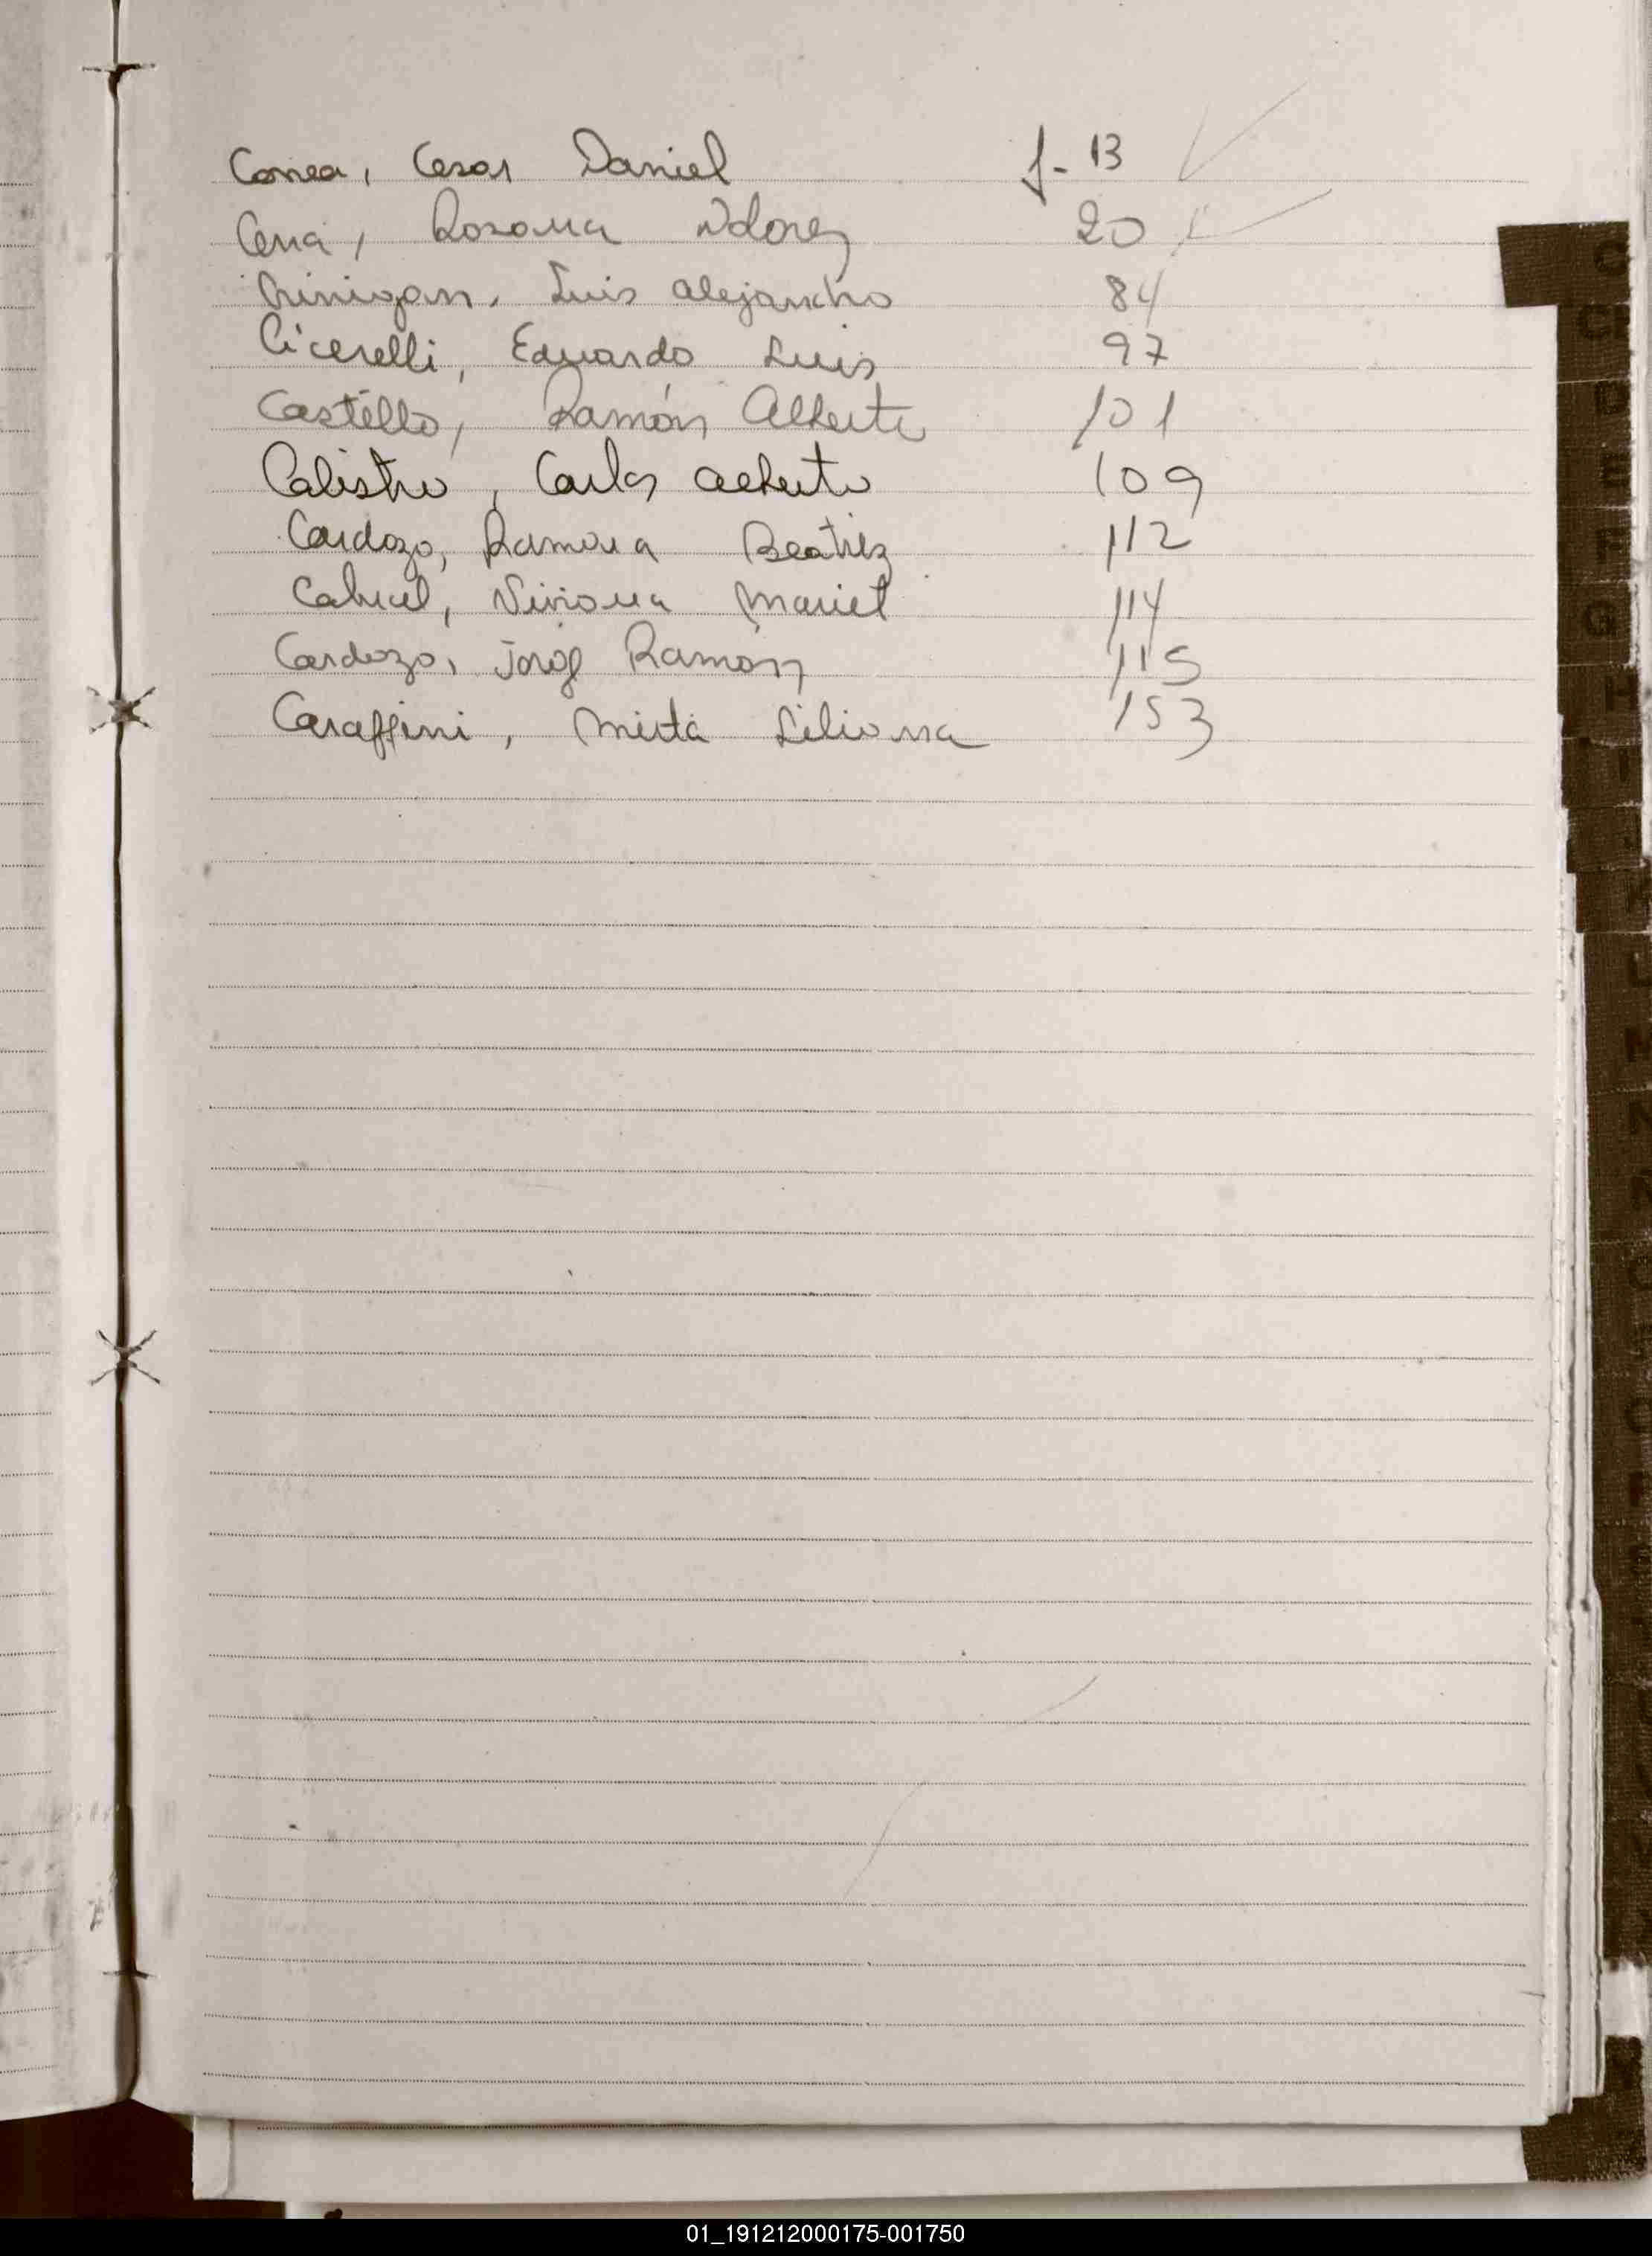 Correa, Cesar Daniel f- 13
Cena, Rosana Dolores 20
Luis Alejandro 84
Cicerelli, Eduardo Luis 97
Castello, Ramón Alberto 101
Calistro, Carlos Alberto 109
Cardozo, Ramona Beatriz 112
Cabral, Viviana Mariel 114
Cardozo, Jorge Ramón 115
Caraffini, Mirta Liliana 153
C
01_191212000175-001750